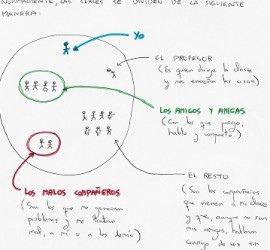 NORMALMENTE, LAS CLASES SE DIVIDEN DE LA SIGUIENTE
MANERA:
YO
EL PROFESOR
(Es quien dirige la clase
y nos enseña las cosas)
LOS AMIGOS Y AMIGAS
(Con los que juego,
hablo y comparto)
EL RESTO
(Son los compañeros
que vienen a mi clase
y que, aunque no son
mis amigos, hablan
conmigo de vez en
LOS MALOS COMPAÑEROS
(Son los que me
problemas y me tratan
mal, a mi o a los demás)